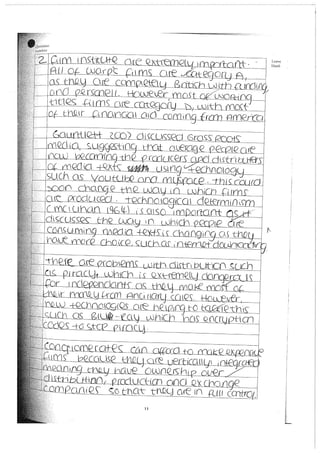 2 film institute are extremely important.
All of warps films are category A,
as they are completely British with funding
and personell. However, most of working
titles films are category D, with most
of their financial aid coming from America
Gauntlett 2007 discussed Grass roots
media, suggesting that average people are
now becoming the producers and distributers
of media texts using technology
such as Youtube and myspace. This could
soon change the way in which films
are produced. Technological determinism
(McLuhan 1964) is also important as it
discusses the way in which people are
consuming media texts is changing as they
have more choice, such as internet downloading
there are problems with distribution such
as piracy, which is extremely dangerous
for independants as they make most of
their money from ancillary sales. However,
new technologies are helping to tackle this
such as Blu-ray which has encryption
codes to stop piracy.
Conglomerates can afford to make expensive
films because they are vertically integrated
meaning they have ownership over
distribution, production and exchange
companies so that they are in full control.